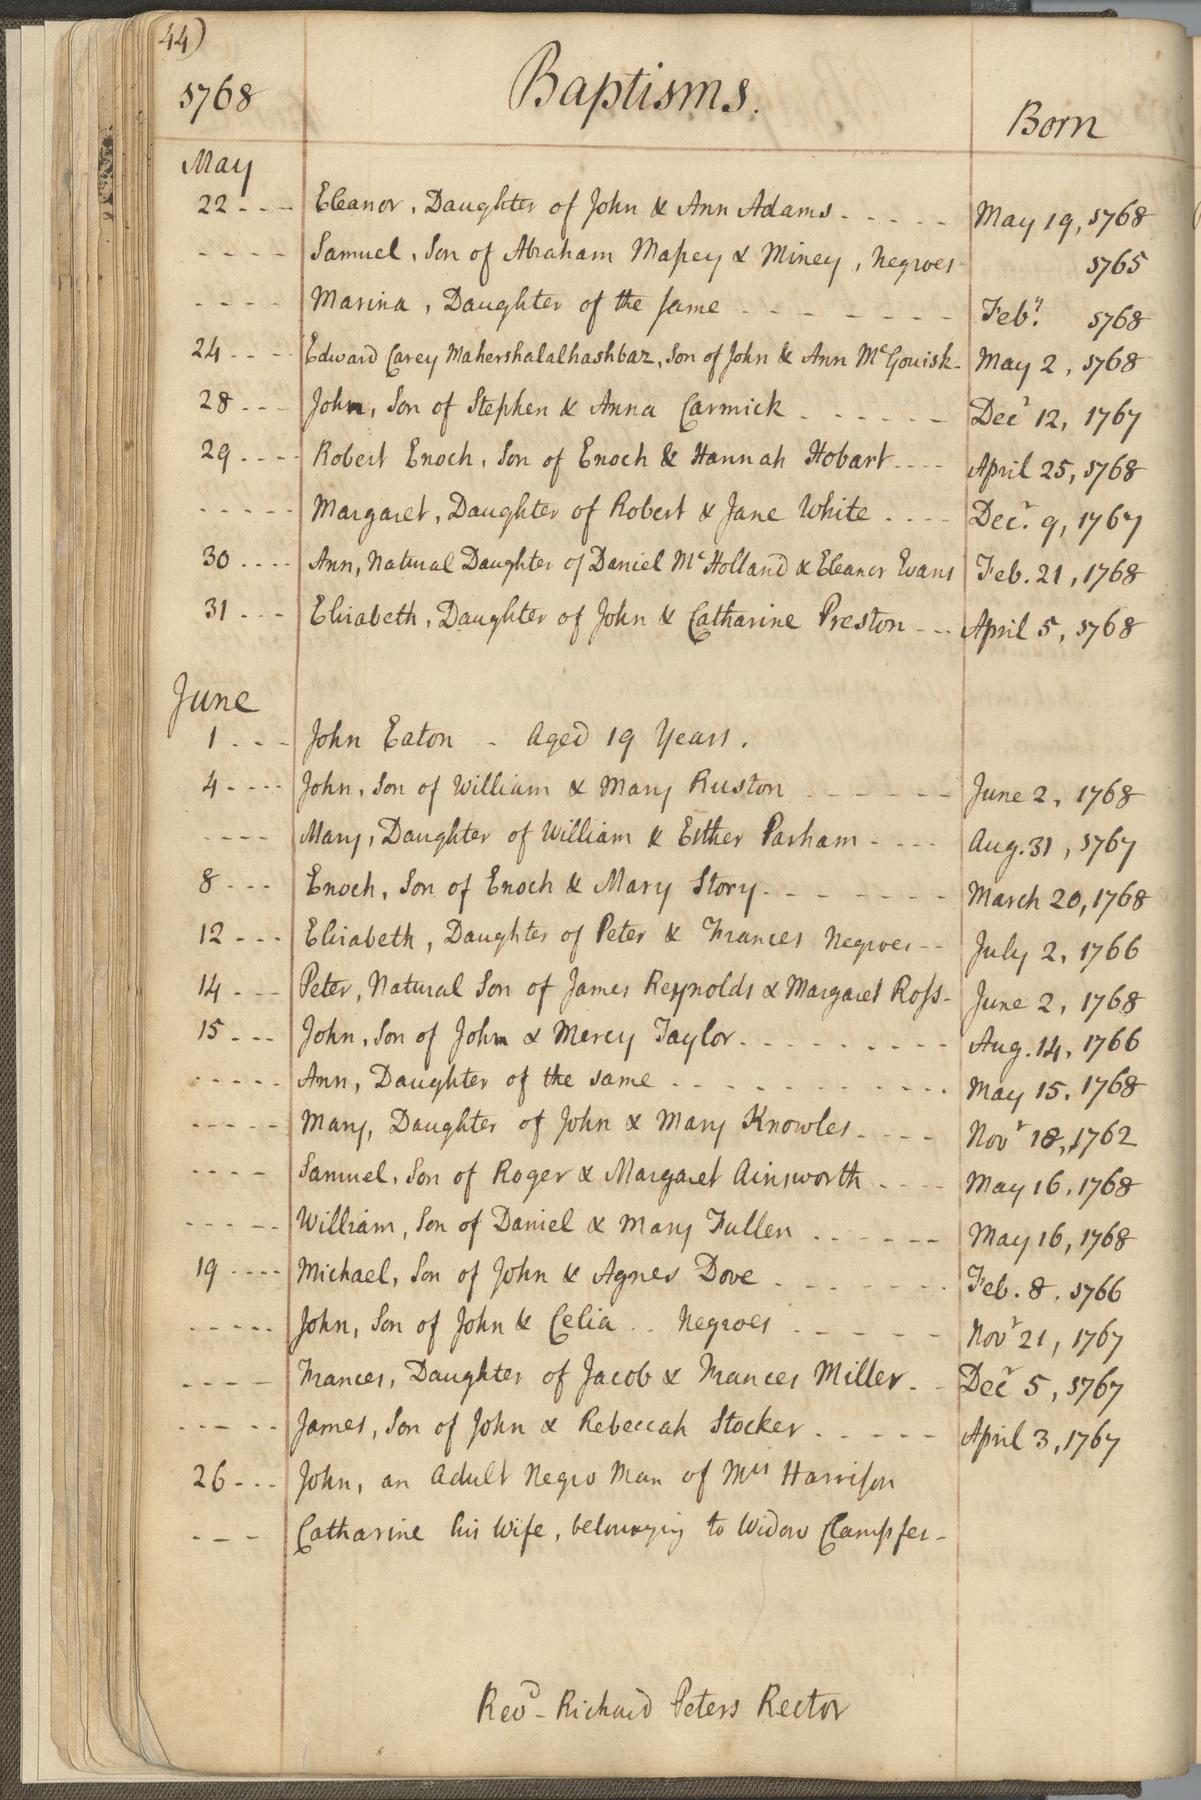 44)
1768 Baptisms. Born
May
22 - - - Eleanor, Daughter of John & Ann Adams - - - - - May 19, 1768
- - - - Samuel, Son of Abraham Massey & Miney, Negroes - 1765
- - - - Marina, Daughter of the same - - - - - - - - Feb.y 1768
24 - - - Edward Carey Mahershalalhashbaz, Son of John & Ann McGouish - May 2, 1768
28 - - - John, Son of Stephen & Anna Carmick - - - - - - Decr 12, 1767
29 - - - - Robert Enoch, Son of Enoch & Hannah Hobart - - - - April 25, 1768
- - - - - Margaret, Daughter of Robert & Jane White - - - - Decr. 9, 1767
30 - - - - Ann, Natural Daughter of Daniel McHolland & Eleanor Evans Feb. 21, 1768
31 - - - Elisabeth, Daughter of John & Catharine Preston - - - April 5, 1768
June
1 - - - John Eaton - Aged 19 Years.
4 - - - - John, Son of William & Mary Ruston - - - - - - June 2, 1768
- - - - Mary, Daughter of William & Esther Parham - - - - Aug. 31, 1767
8 - - - Enoch, Son of Enoch & Mary Story - - - - - - - - March 20, 1768
12 - - - Elisabeth, Daughter of Peter & Frances Negroes - - July 2, 1766
14 - - - Peter, Natural Son of James Reynolds & Margaret Ross - June 2, 1768
15 - - - John, Son of John & Mercy Taylor - - - - - - - - - Aug. 14, 1766
- - - - - Ann, Daughter of the same - - - - - - - - - - - May 15, 1768
- - - - - Mary, Daughter of John & Mary Knowles - - - - Novr 18, 1762
- - - - Samuel, Son of Roger & Margaret Ainsworth - - - - May 16, 1768
- - - - - William, Son of Daniel & Mary Fullen - - - - - - May 16, 1768
19 - - - - Michael, Son of John & Agnes Dove - - - - - - - Feb. 8, 1766
- - - - - John, Son of John & Celia - - Negroes - - - - - - Novr 21, 1767
- - - - Frances, Daughter of Jacob & Frances Miller - - Decr 5, 1767
- - - - - James, Son of John & Rebeccah Stocker - - - - - April 3, 1767
26 - - - John, an Adult Negro Man of Mrs Harrison
- - - Catharine his Wife, belonging to Widow Clampfer -
Revd - Richard Peters Rector